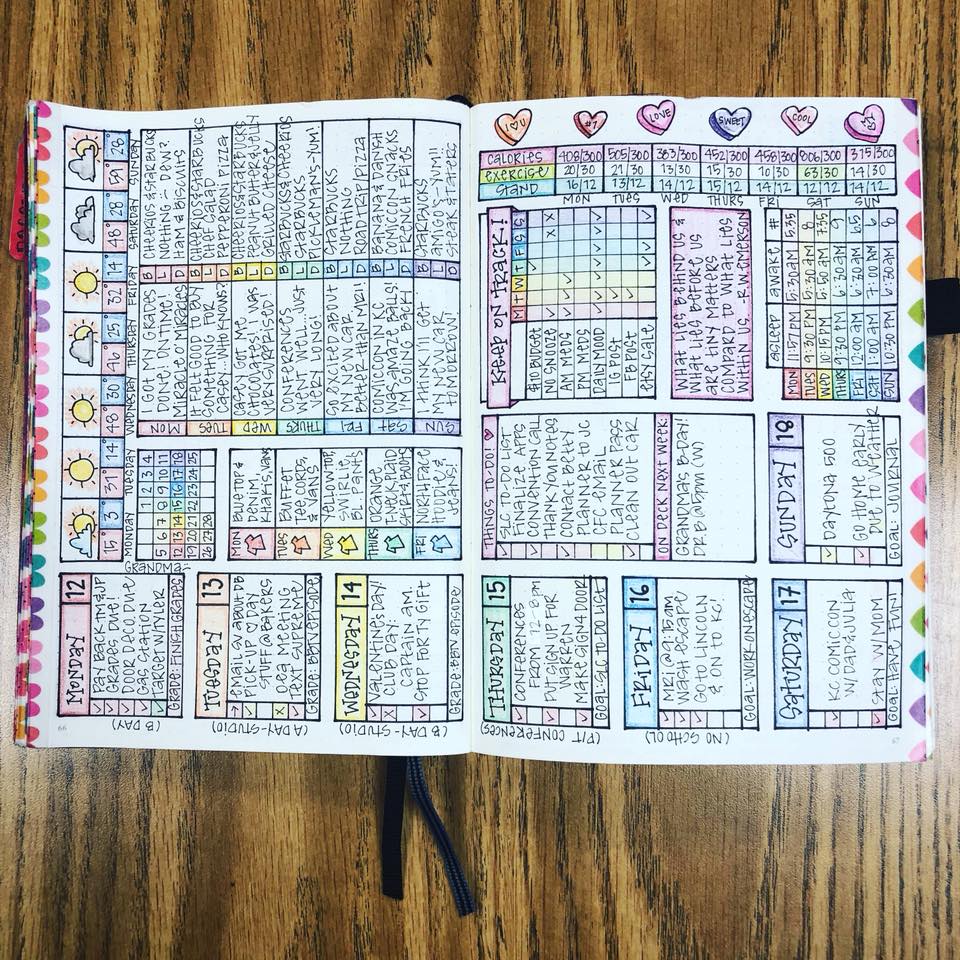 MONDAY 12
PAT BACK-TM&JP
GRADES DUE!
DOOR DECO. DUE
GAS STATION
TARGET W/TYLER
GRADE: FINISH GRADES
(B DAY)
TUESDAY 13
EMAIL GS ABOUT DB
PICK-UP V-DAY
STUFF @ BAKERS
O.E.A MEETING
TEXT SUPREME
GRADE: BBTV EPISODE
(A DAY-STUDIO)
WEDNESDAY 14
VALENTINE'S DAY!
CLUB DAY:
CAPTAIN AM.
STOP FOR TY GIFT
GRADE: BBTV EPISODE
(B DAY-STUDIO)
GRANDMA
15° 3°
MONDAY
31° 14°
TUESDAY
48° 30
WEDNESDAY
46° 25
THURSDAY
32° 14°
FRIDAY
48° 28
SATURDAY
51° 28
SUNDAY
1 2 3 4
5 6 7 8 9 10 11
12 13 14 15 16 17 18
19 20 21 22 23 24 25
26 27 28
MON
BLUE TOP &
DENIM,
KHAKIS, VANS
TUES
BUFFET
TEE, CORDS,
& VANS
WED
YELLOW TOP,
SWIRL TIE,
BL. PANTS
THURS
ORANGE
TUCK, PLAID
CHIEF & BROWNS
FRI
NORTHFACE
HOODIE &
JEANS!
MON
I GOT MY GRADES
DONE! ON TIME!
MIRACLE O' MIRACLES
TUES
I FEEL GOOD TO BUY
SOMETHING FOR
CASEY...WHO KNOWS?
WED
CASEY GOT ME
CHOCOLATES! WAS
VERY SURPRISED!
THURS
CONFERENCES
WENT WELL. JUST
VERY LONG.
FRI
SO EXCITED ABOUT
MY NEW CAR
BETTER THAN MRI!
SAT
COMICON IN KC
WAS AMAZE BALLS!
I'M GOING BACK!
SUN
I THINK I'LL GET
MY NEW CAR
TOMORROW!
B CHEERIOS & STARBUCKS
L NOTHING - PDW?
D HAM & BISCUITS
B CHEEZ CAKE & STARBUCKS
L CHEF SALAD
D PEPPERONI PIZZA
B CHEERIOS & STARBUCKS
L PEANUT BUTTER & JELLY
D GRILLED CHEESE
B STARBUCKS & CHEERIOS
L STARBUCKS
D PICKLEMAN'S-NUM!
B STARBUCKS
L NOTHING
D ROADTRIP PIZZA
B BANANA & DANISH
L COMICON SNACKS
D FRENCH FRIES
B STARBUCKS
L AMIGO'S-NUM!!
D STEAK & TATERS
THURSDAY 15
CONFERENCES
FROM 12-8PM
PUT SIGN UP FOR
WARREN
MAKE SIGN 4 DOOR
GOAL: SLC TO-DO LIST
(P/T CONFERENCES)
FRIDAY 16
MRI @ 9:15AM
WASH ESCAPE
GO TO LINCOLN
& ON TO KC!
GOAL: WORK ON ESCAPE
(NO SCHOOL)
SATURDAY 17
KC COMICCON
W/ DAD & JULIA
STAY W/ MOM
GOAL: HAVE FUN!
THINGS TO-DO!
SLC TO-DO LIST
FINALIZE APPS
CONVENTION CALL
THANK YOU NOTES
CONTACT BETTY
PLANNER TO JC
CFC EMAIL
PLANNER PASS
CLEAN OUT CAR
ON DECK NEXT WEEK:
GRANDMA'S B-DAY!
DR.B @ 5PM (W)
SUNDAY 18
DAYTONA 500
GO HOME EARLY
DUE TO WEATHER
GOAL: JOURNAL
KEEP ON TRACK!
M T W T F S S
$ IN BUDGET
NO SNOOZE
AM MEDS
PM MEDS
DAILY MOOD
IG POST
FB POST
ETSY SALE
WHAT LIES BEHIND US &
WHAT LIES BEFORE US
ARE TINY MATTERS
COMPARED TO WHAT LIES
WITHIN US. -R.W. EMERSON
ASLEEP AWAKE #
MON 11:57PM 5:30AM 5.55
TUES 9:30PM 5:30AM 8
WED 10:15PM 5:50AM 7.55
THURS 9:30PM 6:30AM 9
FRI 12:00AM 6:30AM 6.5
SAT 1:00AM 7:00AM 6
SUN 10:30PM 6:30AM 8
I ♡ U
#7
LOVE
SWEET
COOL
CALORIES 408/300 505/300 383/300 452/300 458/300 806/300 375/300
EXERCISE 20/30 21/30 13/30 15/30 10/30 63/30 14/30
STAND 16/12 13/12 14/12 15/12 14/12 12/12 14/12
MON TUES WED THURS FRI SAT SUN